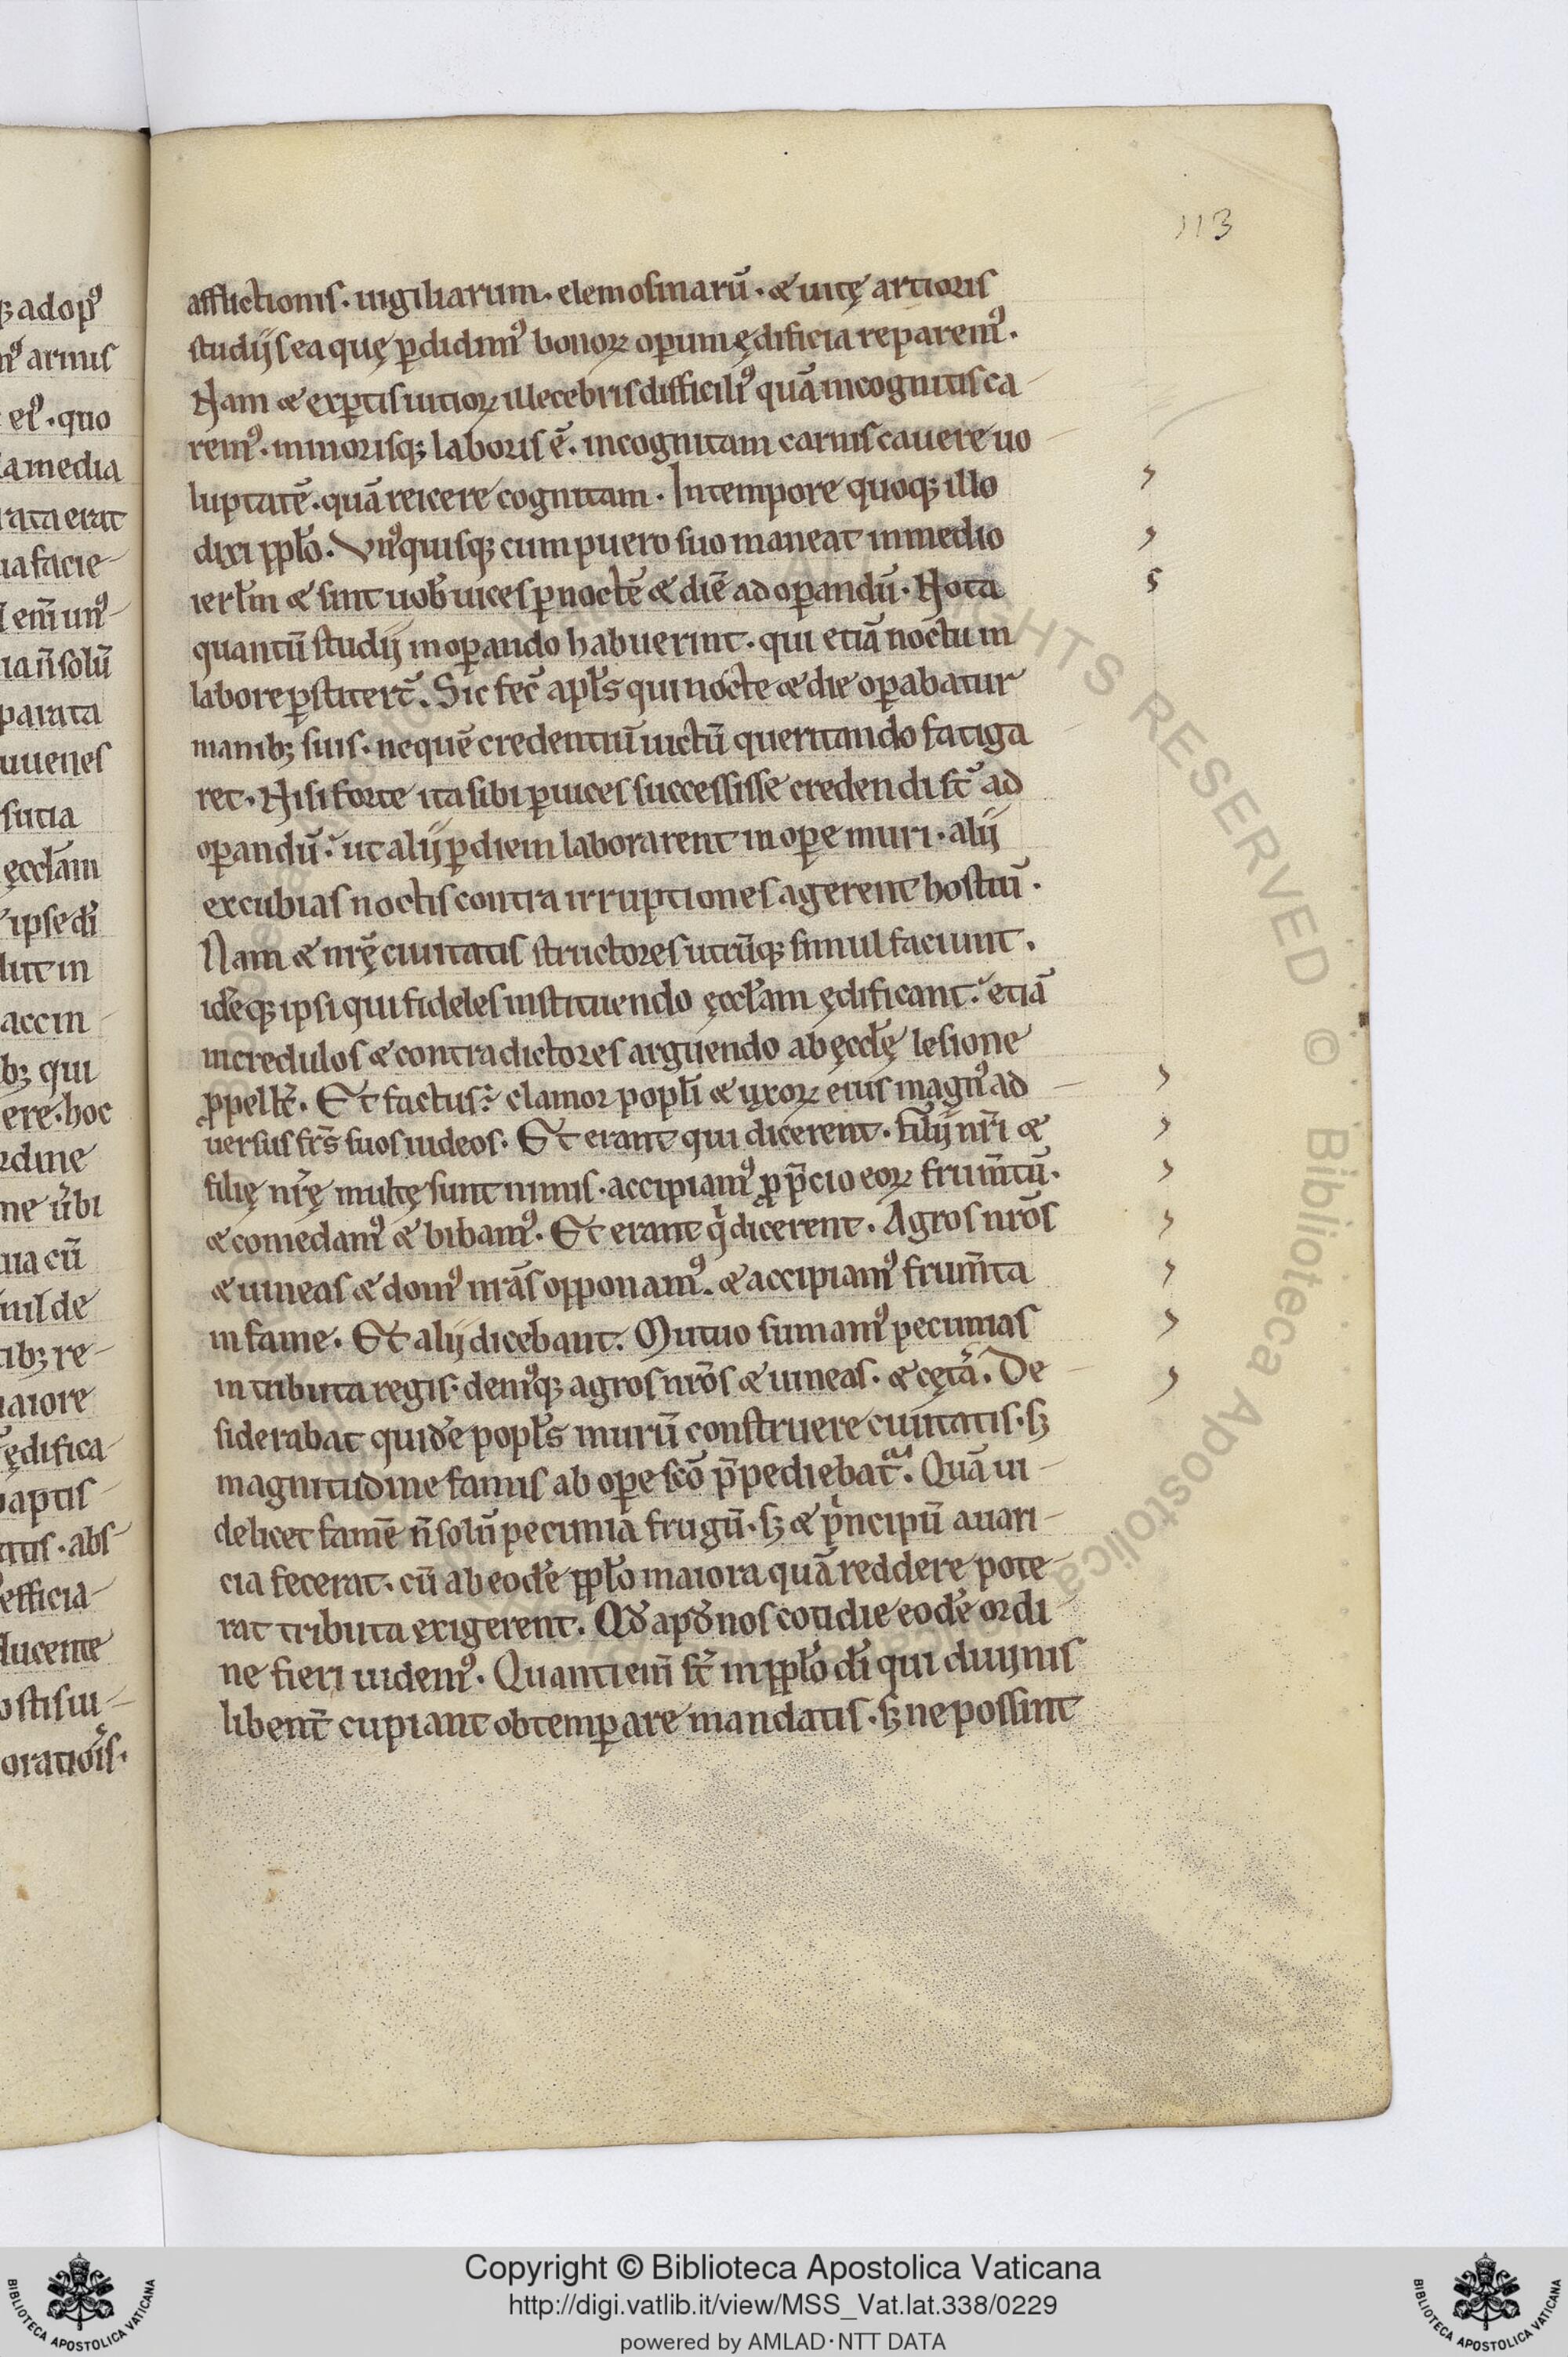 113
afflictionis. uigiliarum. elemosinarū. & uitę artioris
studijs ea quę ꝑdidim᷒ bonoꝝ oꝑum ędificia reparem᷒.
Nam & exꝑtis uitioꝝ illecebris difficili᷒ quā incognitis ca
rem᷒. minorisqꝫ laboris ē. incognitam carnis cauere uo
luptatē. quā reicere cognitam. In tempore quoqꝫ illo
dixi ppl̄o. Vn᷒quisqꝫ cum puero suo maneat in medio
ierl̄m & sint uob̄ uices ꝑ noctē & diē ad oꝑandū. Nota
quantū studij in oꝑando habuerint. qui etiā noctu in
labore ꝑstitert̄. Sic fec̄ apl̄s qui nocte & die oꝑabatur
manibꝫ suis. ne quē credentiū uictū queritando fatiga
ret. Nisi forte ita sibi ꝑ uices successisse credendi st̄ ad
oꝑandū. ut alij ꝑ diem laborarent in oꝑe muri. alij
excubias noctis contra irruptiones agerent hostiū.
Nam & nr̄ę ciuitatis structores utrūqꝫ simul faciunt.
idēqꝫ ipsi qui fideles instituendo ęccl̄am ędificant. etiā
incredulos & contradictores arguendo ab ęccl̄ę lesione
ꝓpellt̄. Et factus ÷ clamor popl̄i & uxoꝝ eius magn᷒ ad
uersus fr̄s suos iudeos. Et erant qui dicerent. filij nr̄i &
filię nr̄ę multę sunt nimis. accipiam᷒ ꝓ p̄cio eoꝝ frum̄tū.
& comedam᷒ & bibam᷒. Et erant qͥ dicerent. Agros nr̄os
& uineas & dom᷒ nr̄as opponam᷒. & accipiam᷒ frum̄ta
in fame. Et alij dicebant. Mutuo sumam᷒ pecunias
in tributa regis. dem᷒qꝫ agros nr̄os & uineas. & cętaᷓ. De
siderabat quidē popl̄s murū construere ciuitatis. sꝫ
magnitudine famis ab oꝑe sc̄o p̄pediebat᷑. Quā ui
delicet famē n̄ solū pecunia frugū. sꝫ & pͥncipū auari
cia fecerat. cū ab eodē ppl̄o maiora quā reddere pote
rat tributa exigerent. Qđ apđ nos cotidie eodē ordi
ne fieri uidem᷒. Quanti eni᷒ st̄ in ppl̄o dī qui diuinis
libent̄ cupiant obtemꝑare mandatis. sꝫ ne possint
Copyright © Biblioteca Apostolica Vaticana
http://digi.vatlib.it/view/MSS_Vat.lat.338/0229
powered by AMLAD·NTT DATA